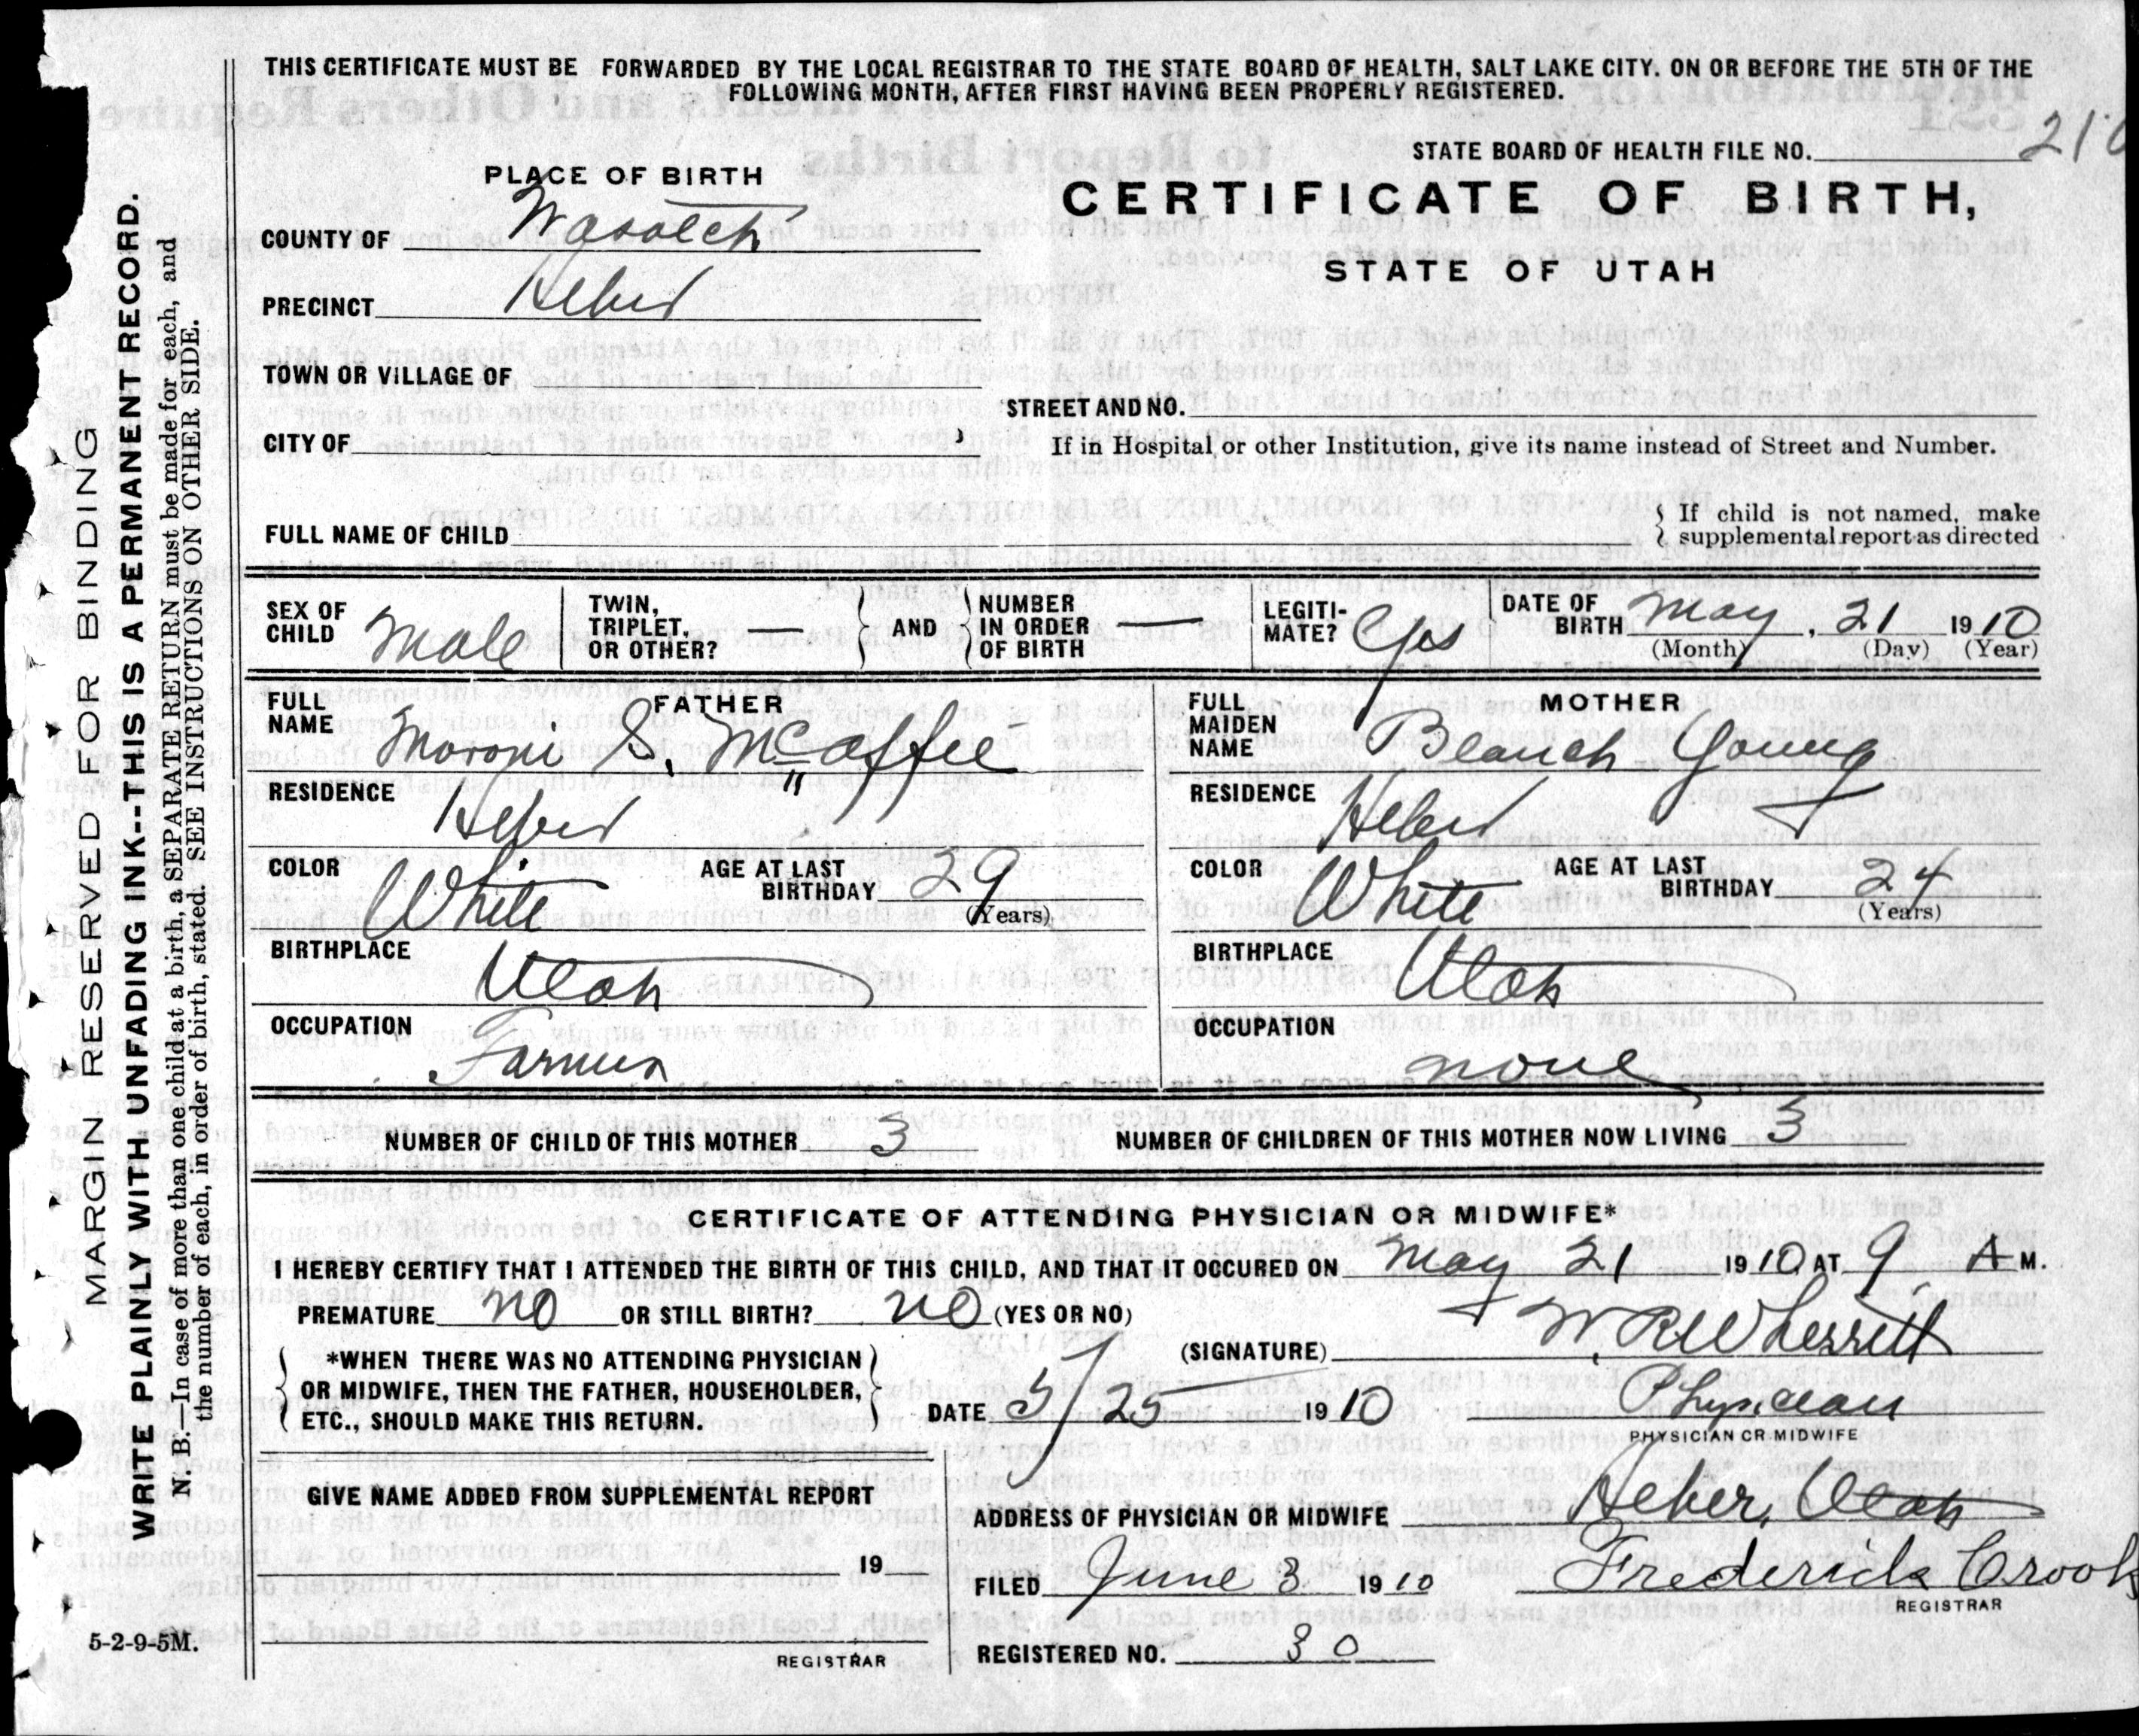 THIS CERTIFICATE MUST BE FORWARDED BY THE LOCAL REGISTRAR TO THE STATE BOARD OF HEALTH, SALT LAKE CITY. ON OR BEFORE THE 5TH OF THE
FOLLOWING MONTH, AFTER FIRST HAVING BEEN PROPERLY REGISTERED.
STATE BOARD OF HEALTH FILE NO. 210
PLACE OF BIRTH
CERTIFICATE OF BIRTH,
STATE OF UTAH
COUNTY OF Wasatch
PRECINCT Heber
TOWN OR VILLAGE OF
STREET AND NO.
CITY OF
If in Hospital or other Institution, give its name instead of Street and Number.
FULL NAME OF CHILD
{ If child is not named, make
supplemental report as directed
SEX OF CHILD Male
TWIN, TRIPLET, OR OTHER? —
} AND {
NUMBER IN ORDER OF BIRTH —
LEGITI-MATE? Yes
DATE OF BIRTH May, 21 1910
(Month) (Day) (Year)
FATHER
FULL NAME Moroni S. McAffee
RESIDENCE Heber
COLOR White AGE AT LAST BIRTHDAY 29
(Years)
BIRTHPLACE Utah
OCCUPATION Farmer
MOTHER
FULL MAIDEN NAME Blanch Young
RESIDENCE Heber
COLOR White AGE AT LAST BIRTHDAY 24
(Years)
BIRTHPLACE Utah
OCCUPATION none
NUMBER OF CHILD OF THIS MOTHER 3 NUMBER OF CHILDREN OF THIS MOTHER NOW LIVING 3
CERTIFICATE OF ATTENDING PHYSICIAN OR MIDWIFE*
I HEREBY CERTIFY THAT I ATTENDED THE BIRTH OF THIS CHILD, AND THAT IT OCCURED ON May 21 1910 AT 9 A M.
PREMATURE no OR STILL BIRTH? no (YES OR NO)
(SIGNATURE) W. R. Wherritt
{ *WHEN THERE WAS NO ATTENDING PHYSICIAN
OR MIDWIFE, THEN THE FATHER, HOUSEHOLDER,
ETC., SHOULD MAKE THIS RETURN. }
DATE 5/25 1910 Physician
PHYSICIAN OR MIDWIFE
GIVE NAME ADDED FROM SUPPLEMENTAL REPORT
19
REGISTRAR
ADDRESS OF PHYSICIAN OR MIDWIFE Heber, Utah
FILED June 3 1910 Frederick Crook
REGISTRAR
REGISTERED NO. 30
MARGIN RESERVED FOR BINDING
WRITE PLAINLY WITH UNFADING INK--THIS IS A PERMANENT RECORD.
N. B.—In case of more than one child at a birth, a SEPARATE RETURN must be made for each, and
the number of each, in order of birth, stated. SEE INSTRUCTIONS ON OTHER SIDE.
5-2-9-5M.